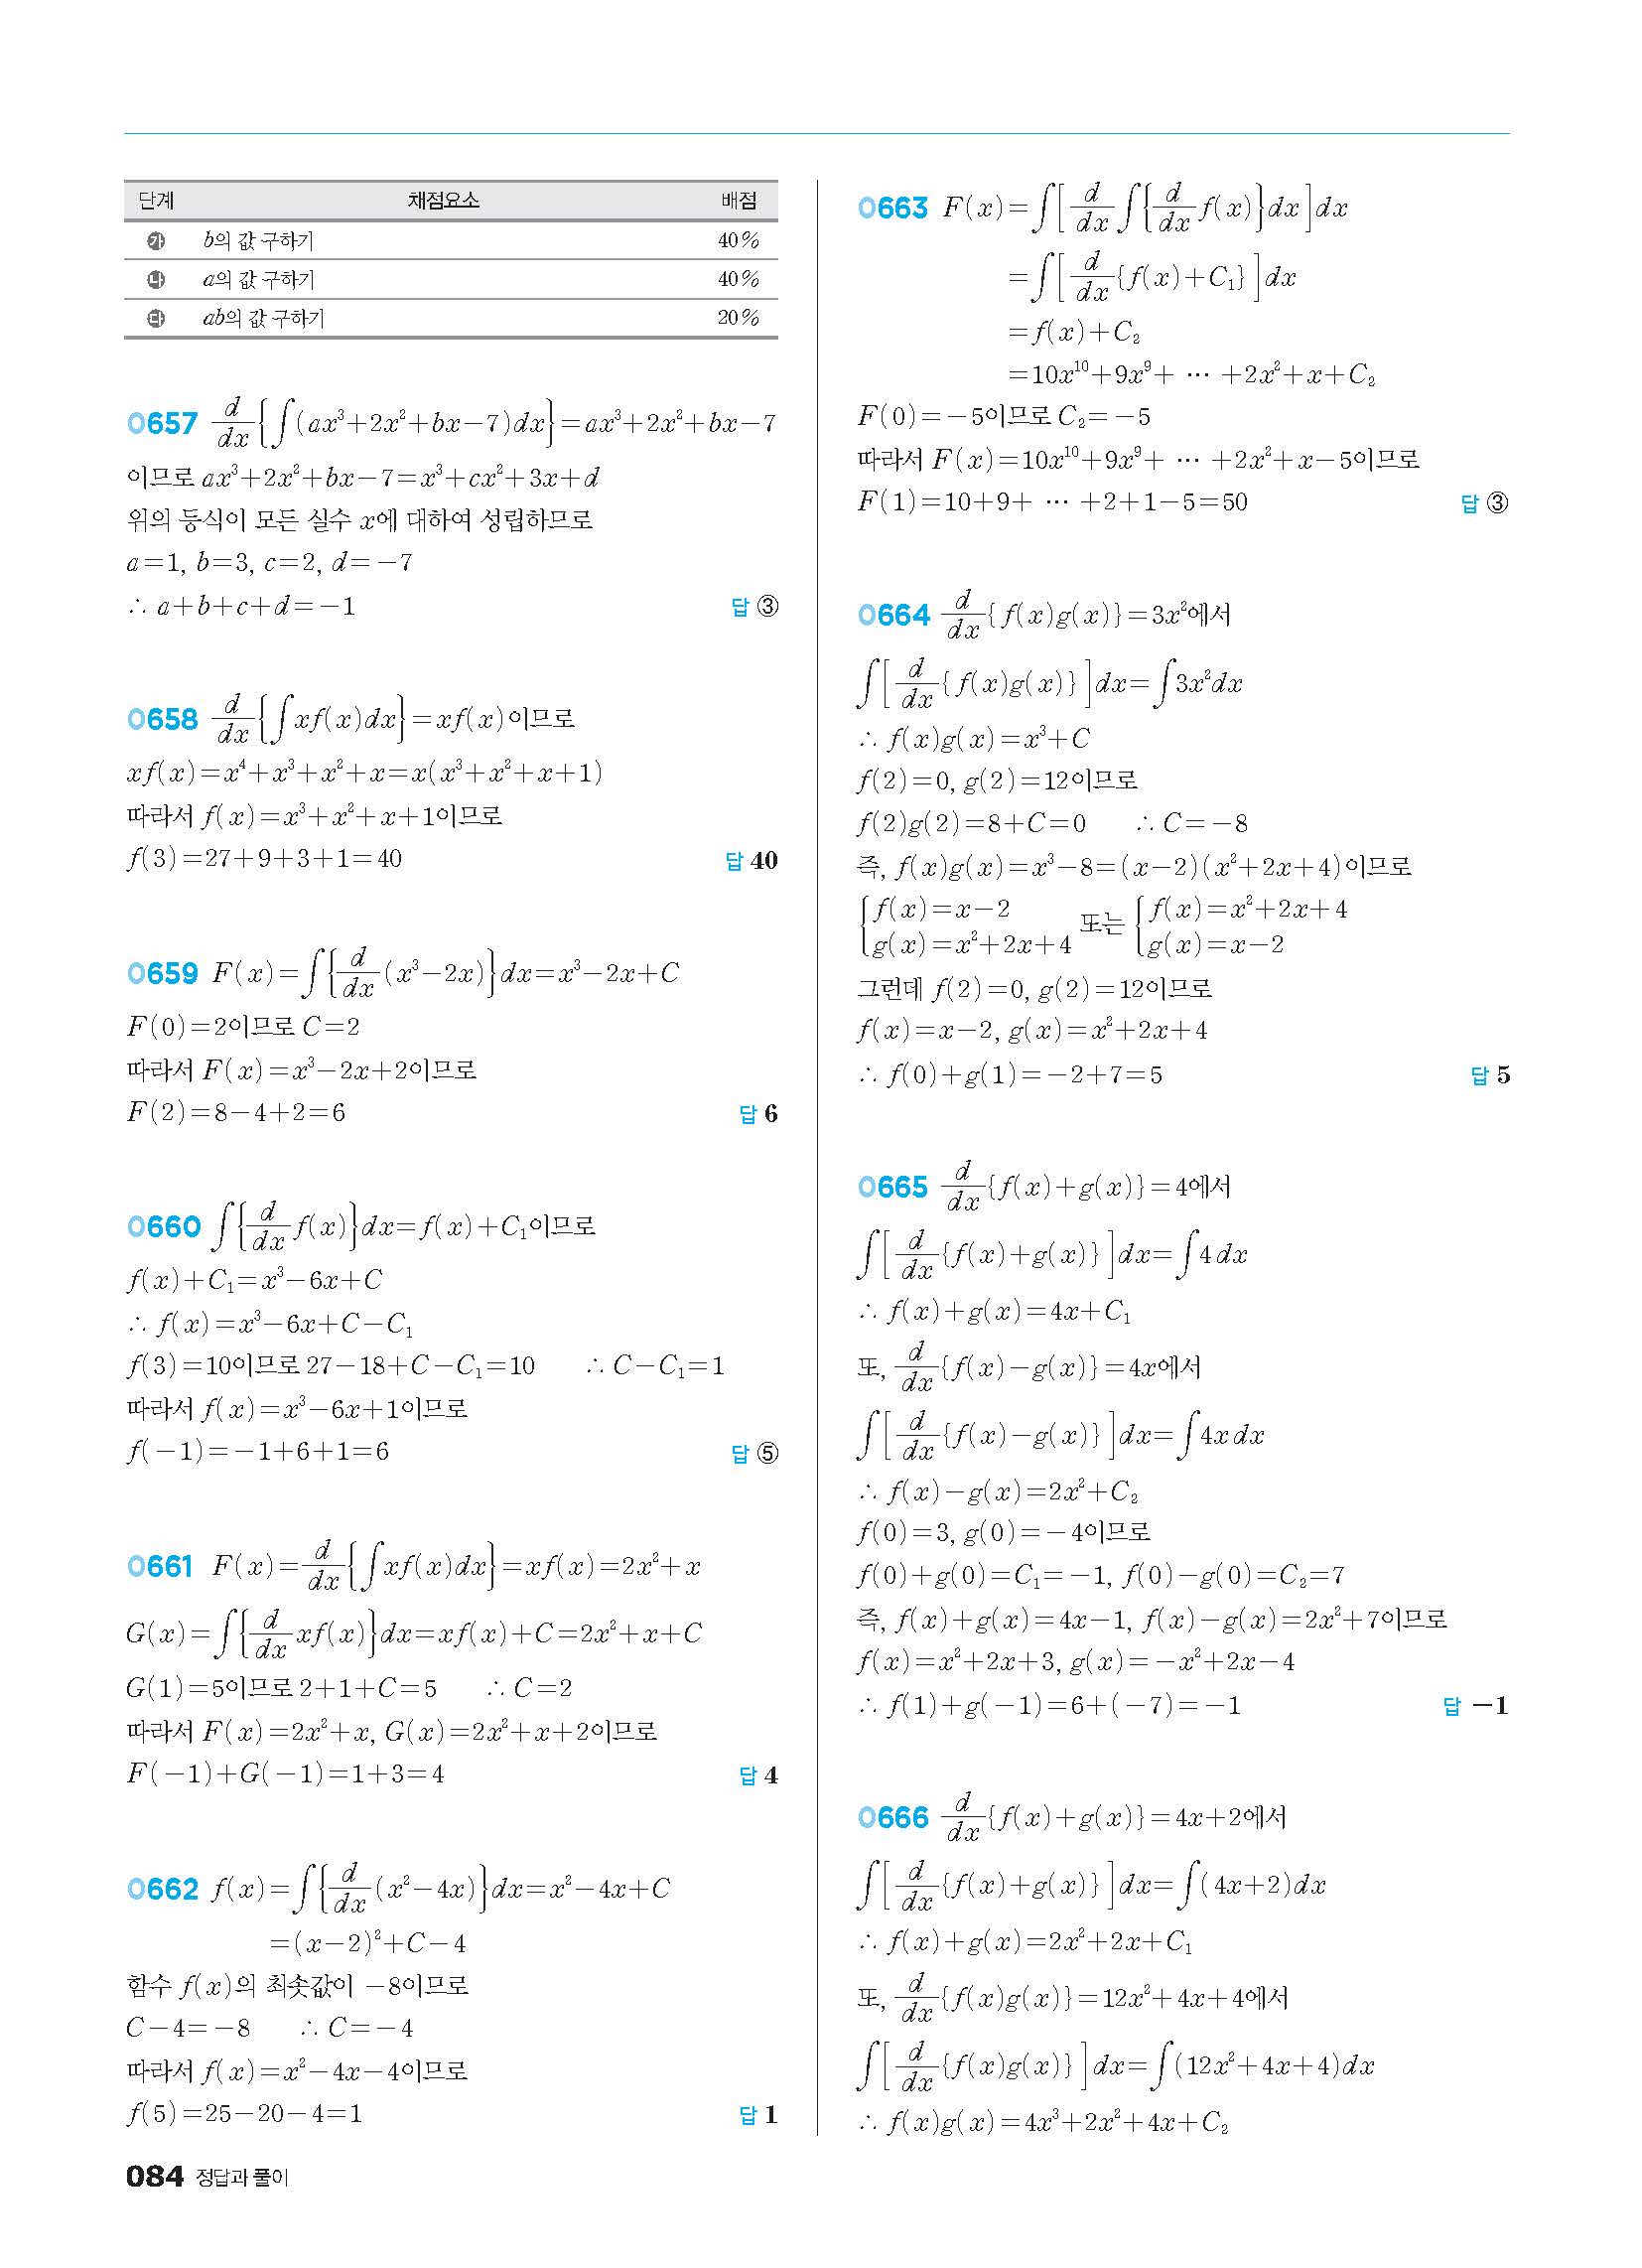 단계 채점요소 배점
㉮ b의 값 구하기 40%
㉯ a의 값 구하기 40%
㉰ ab의 값 구하기 20%
0657 d/dx{∫(ax³+2x²+bx-7)dx}=ax³+2x²+bx-7
이므로 ax³+2x²+bx-7=x³+cx²+3x+d
위의 등식이 모든 실수 x에 대하여 성립하므로
a=1, b=3, c=2, d=-7
∴ a+b+c+d=-1 답 ③
0658 d/dx{∫xf(x)dx}=xf(x)이므로
xf(x)=x⁴+x³+x²+x=x(x³+x²+x+1)
따라서 f(x)=x³+x²+x+1이므로
f(3)=27+9+3+1=40 답 40
0659 F(x)=∫{d/dx(x³-2x)}dx=x³-2x+C
F(0)=2이므로 C=2
따라서 F(x)=x³-2x+2이므로
F(2)=8-4+2=6 답 6
0660 ∫{d/dx f(x)}dx=f(x)+C₁이므로
f(x)+C₁=x³-6x+C
∴ f(x)=x³-6x+C-C₁
f(3)=10이므로 27-18+C-C₁=10 ∴ C-C₁=1
따라서 f(x)=x³-6x+1이므로
f(-1)=-1+6+1=6 답 ⑤
0661 F(x)=d/dx{∫xf(x)dx}=xf(x)=2x²+x
G(x)=∫{d/dx xf(x)}dx=xf(x)+C=2x²+x+C
G(1)=5이므로 2+1+C=5 ∴ C=2
따라서 F(x)=2x²+x, G(x)=2x²+x+2이므로
F(-1)+G(-1)=1+3=4 답 4
0662 f(x)=∫{d/dx(x²-4x)}dx=x²-4x+C
=(x-2)²+C-4
함수 f(x)의 최솟값이 -8이므로
C-4=-8 ∴ C=-4
따라서 f(x)=x²-4x-4이므로
f(5)=25-20-4=1 답 1
0663 F(x)=∫[d/dx∫{d/dx f(x)}dx]dx
=∫[d/dx{f(x)+C₁}]dx
=f(x)+C₂
=10x¹⁰+9x⁹+ ⋯ +2x²+x+C₂
F(0)=-5이므로 C₂=-5
따라서 F(x)=10x¹⁰+9x⁹+ ⋯ +2x²+x-5이므로
F(1)=10+9+ ⋯ +2+1-5=50 답 ③
0664 d/dx{f(x)g(x)}=3x²에서
∫[d/dx{f(x)g(x)}]dx=∫3x²dx
∴ f(x)g(x)=x³+C
f(2)=0, g(2)=12이므로
f(2)g(2)=8+C=0 ∴ C=-8
즉, f(x)g(x)=x³-8=(x-2)(x²+2x+4)이므로
{f(x)=x-2 또는 {f(x)=x²+2x+4
g(x)=x²+2x+4 g(x)=x-2
그런데 f(2)=0, g(2)=12이므로
f(x)=x-2, g(x)=x²+2x+4
∴ f(0)+g(1)=-2+7=5 답 5
0665 d/dx{f(x)+g(x)}=4에서
∫[d/dx{f(x)+g(x)}]dx=∫4dx
∴ f(x)+g(x)=4x+C₁
또, d/dx{f(x)-g(x)}=4x에서
∫[d/dx{f(x)-g(x)}]dx=∫4xdx
∴ f(x)-g(x)=2x²+C₂
f(0)=3, g(0)=-4이므로
f(0)+g(0)=C₁=-1, f(0)-g(0)=C₂=7
즉, f(x)+g(x)=4x-1, f(x)-g(x)=2x²+7이므로
f(x)=x²+2x+3, g(x)=-x²+2x-4
∴ f(1)+g(-1)=6+(-7)=-1 답 -1
0666 d/dx{f(x)+g(x)}=4x+2에서
∫[d/dx{f(x)+g(x)}]dx=∫(4x+2)dx
∴ f(x)+g(x)=2x²+2x+C₁
또, d/dx{f(x)g(x)}=12x²+4x+4에서
∫[d/dx{f(x)g(x)}]dx=∫(12x²+4x+4)dx
∴ f(x)g(x)=4x³+2x²+4x+C₂
084 정답과 풀이